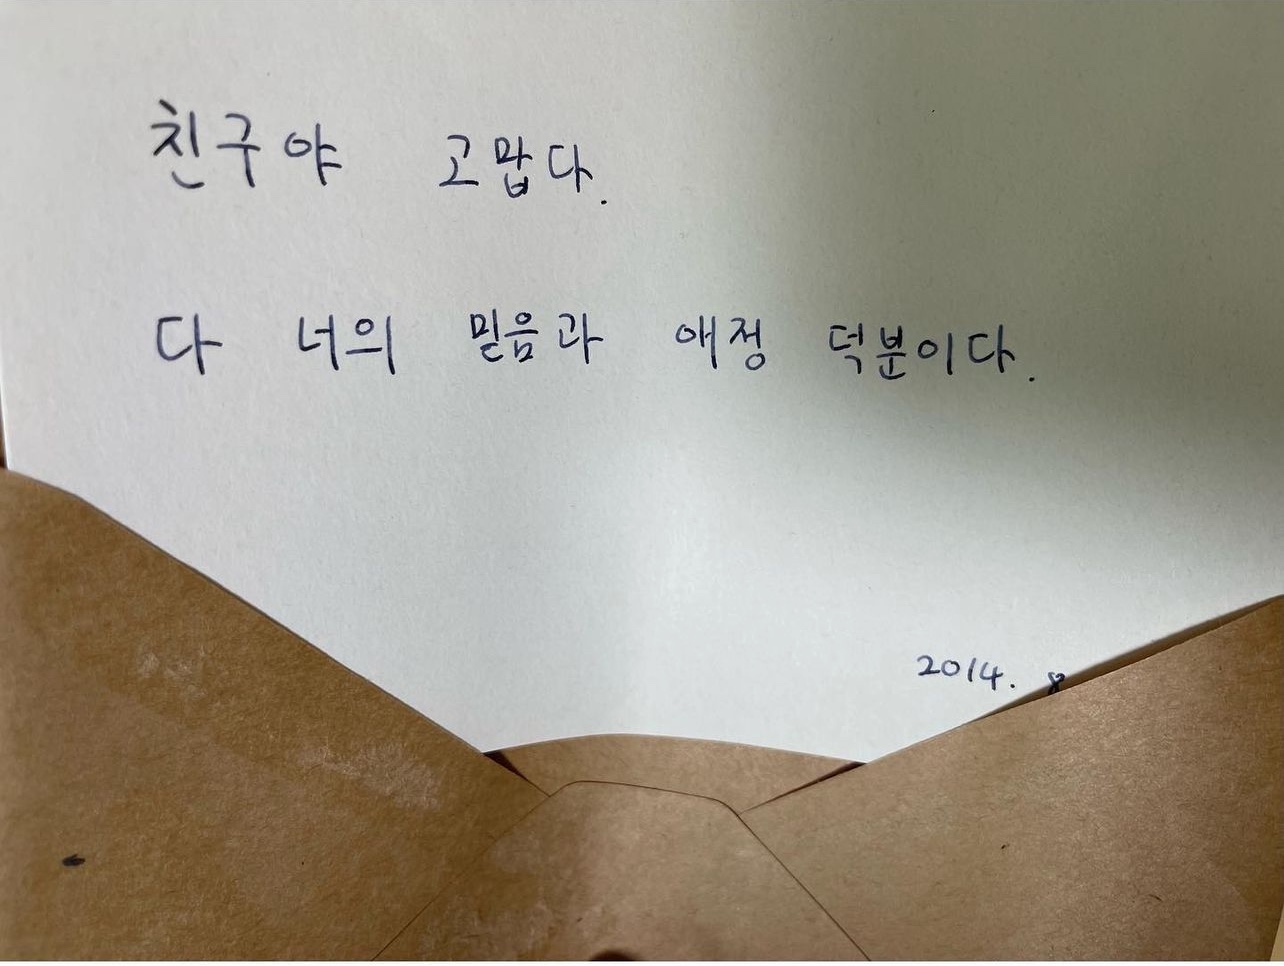 친구야 고맙다.
다 너의 믿음과 애정 덕분이다.
2014. 8